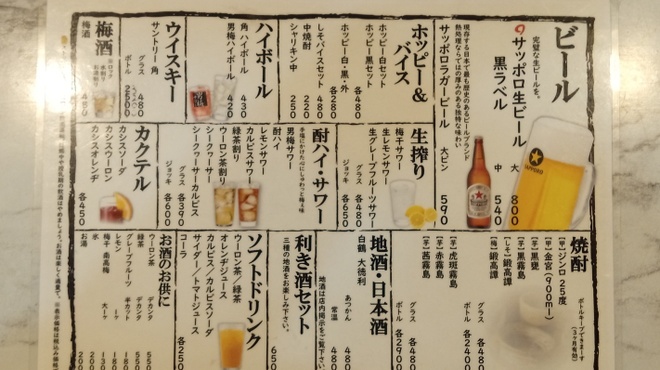 ビール
完璧な生ビールを。
サッポロ生ビール
黒ラベル
大 800
中 540
現存する日本で最も歴史のあるビールブランド
熱処理ならではの厚みのある独特な味わい
サッポロラガービール
大ビン 590
ホッピー&
バイス
ホッピー白セット
ホッピー黒セット
各480
ホッピー白・黒・外 各280
しそバイスセット 480
中焼酎 250
シャリキン中 220
ハイボール
角ハイボール 430
男梅ハイボール 420
ウイスキー
サントリー 角
グラス 480
ボトル 2500
梅酒
梅酒 480
生搾り
梅干サワー
生レモンサワー
生グレープフルーツサワー
グラス 各480
ジョッキ 各650
酎ハイ・サワー
男梅サワー
酎ハイ
レモンサワー
カルピスサワー
緑茶割り
ウーロン茶割り
シークヮーサーサワー
シークヮーサーカルピス
グラス 各390
ジョッキ 各600
カクテル
カシスソーダ
カシスウーロン
カシスオレンヂ
各450
焼酎
ボトルキープできまーす
(3ヶ月有効)
【甲】ジンロ 25度
【甲】金宮(900ml)
【芋】黒甕
【芋】黒霧島
【しそ】鍛高譚
【梅】鍛高譚
グラス 各480
ボトル 各2400
【芋】虎斑霧島
【芋】赤霧島
【芋】茜霧島
グラス 各480
ボトル 各2900
地酒・日本酒
白鶴 大徳利
あつかん 480
常温 480
地酒は店内掲示をご覧下さい。
利き酒セット
三種の地酒をお楽しみ下さい。
650
ソフトドリンク
ウーロン茶/緑茶
オレンヂジュース
カルピス/カルピスソーダ
サイダー/トマトジュース
コーラ
各250
お酒のお供に
ウーロン茶 デカンタ 550
緑茶 デカンタ 550
グレープフルーツ 半カット 180
レモン
梅干 南高梅 大一ヶ 130
氷 100
お湯 200